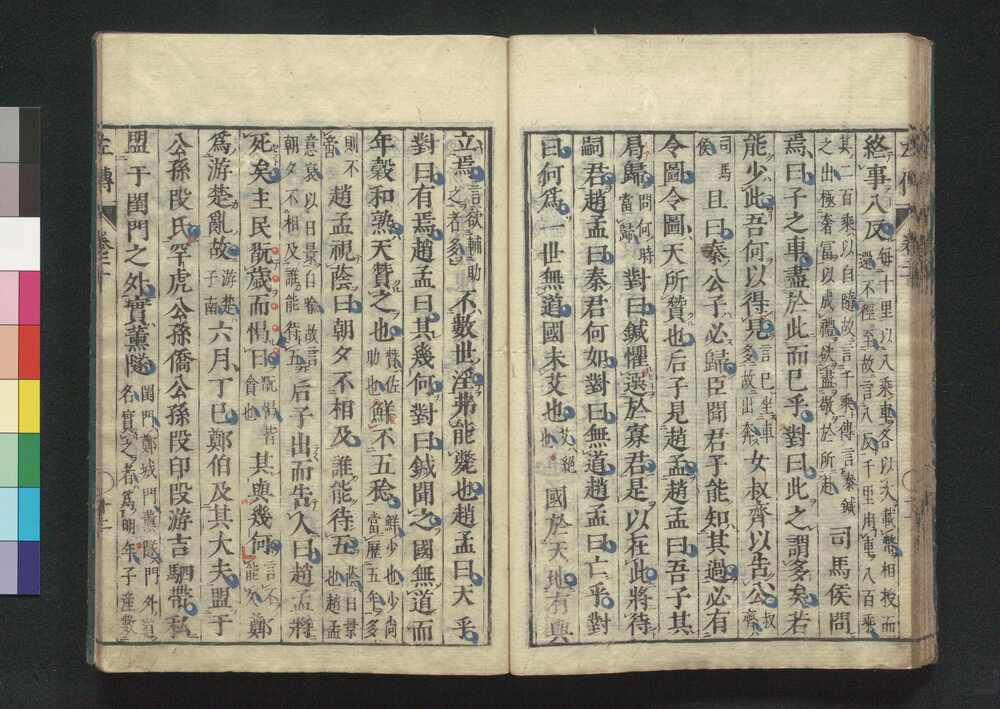 終事八反每十里以八乘車各以次載幣相授而還不徑至故言八反千里用車八百乘
其二百乘以自隨故言千乘傳言秦鍼之出極奢富以成禮欲盡敬於所赴司馬侯問
焉曰子之車盡於此而已乎對曰此之謂多矣若
能少此吾何以得見言己坐車多故出奔女叔齊以告公叔齊
司馬侯且曰秦公子必歸臣聞君子能知其過必有
令圖令圖天所贊也后子見趙孟趙孟曰吾子其
曷歸問何時當歸對曰鍼懼選於寡君是以在此將待
嗣君趙孟曰秦君何如對曰無道趙孟曰亡乎對
曰何爲一世無道國未艾也艾絕也國於天地有與
立焉言欲輔助之者多不數世淫弗能斃也趙孟曰天乎
對曰有焉趙孟曰其幾何對曰鍼聞之國無道而
年穀和熟天贊之也贊佐助也鮮不五稔鮮少也少尚當歷五年多
則不啻趙孟視蔭曰朝夕不相及誰能待五蔭日景也趙孟
意衰以日景自喻故言朝夕不相及誰能待五后子出而告人曰趙孟將
死矣主民翫歲而愒日翫愒皆貪也其與幾何言不能久鄭
爲游楚亂故游楚子南六月丁巳鄭伯及其大夫盟于
公孫段氏罕虎公孫僑公孫段印段游吉駟帶私
盟于閨門之外實薰隧閨門鄭城門薰隧門外道名實之者爲明年子產數
左傳 卷二十